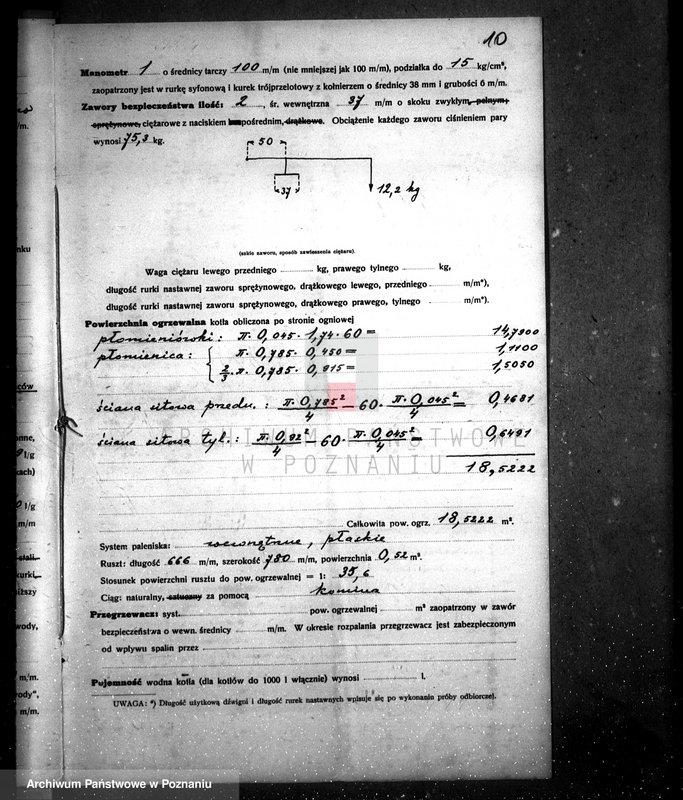 10
Manometr 1 o średnicy tarczy 100 m/m (nie mniejszej jak 100 m/m), podziałka do 15 kg/cm²,
zaopatrzony jest w rurkę syfonową i kurek trójprzelotowy z kołnierzem o średnicy 38 mm i grubości 6 m/m.
Zawory bezpieczeństwa ilość: 2, śr. wewnętrzna 37 m/m o skoku zwykłym, pełnym,
sprężynowe, ciężarowe z naciskiem bezpośrednim, drążkowe. Obciążenie każdego zaworu ciśnieniem pary
wynosi 75,3 kg.
50
37
12,2 kg
(szkic zaworu, sposób zawieszenia ciężaru).
Waga ciężaru lewego przedniego kg, prawego tylnego kg,
długość rurki nastawnej zaworu sprężynowego, drążkowego lewego, przedniego m/m*),
długość rurki nastawnej zaworu sprężynowego, drążkowego prawego, tylnego m/m*).
Powierzchnia ogrzewalna kotła obliczona po stronie ogniowej
płomieniówki: π · 0,045 · 1,74 · 60 = 14,7900
płomienica: π · 0,785 · 0,450 = 1,1100
2/3 · π · 0,785 · 0,915 = 1,5050
ściana sitowa przedn.: π · 0,785²/4 − 60 · π · 0,045²/4 = 0,4681
ściana sitowa tyl.: π · 0,92²/4 − 60 · π · 0,045²/4 = 0,6491
18,5222
Całkowita pow. ogrz. 18,5222 m².
System paleniska: wewnętrzne, płaskie
Ruszt: długość 666 m/m, szerokość 780 m/m, powierzchnia 0,52 m².
Stosunek powierzchni rusztu do pow. ogrzewalnej = 1: 35,6
Ciąg: naturalny, sztuczny za pomocą komina
Przegrzewacz: syst. pow. ogrzewalnej m² zaopatrzony w zawór
bezpieczeństwa o wewn. średnicy m/m. W okresie rozpalania przegrzewacz jest zabezpieczonym
od wpływu spalin przez
Pojemność wodna kotła (dla kotłów do 1000 l włącznie) wynosi l.
UWAGA: *) Długość użytkową dźwigni i długość rurek nastawnych wpisuje się po wykonaniu próby odbiorczej.
ARCHIWUM PAŃSTWOWE
W POZNANIU
Archiwum Państwowe w Poznaniu